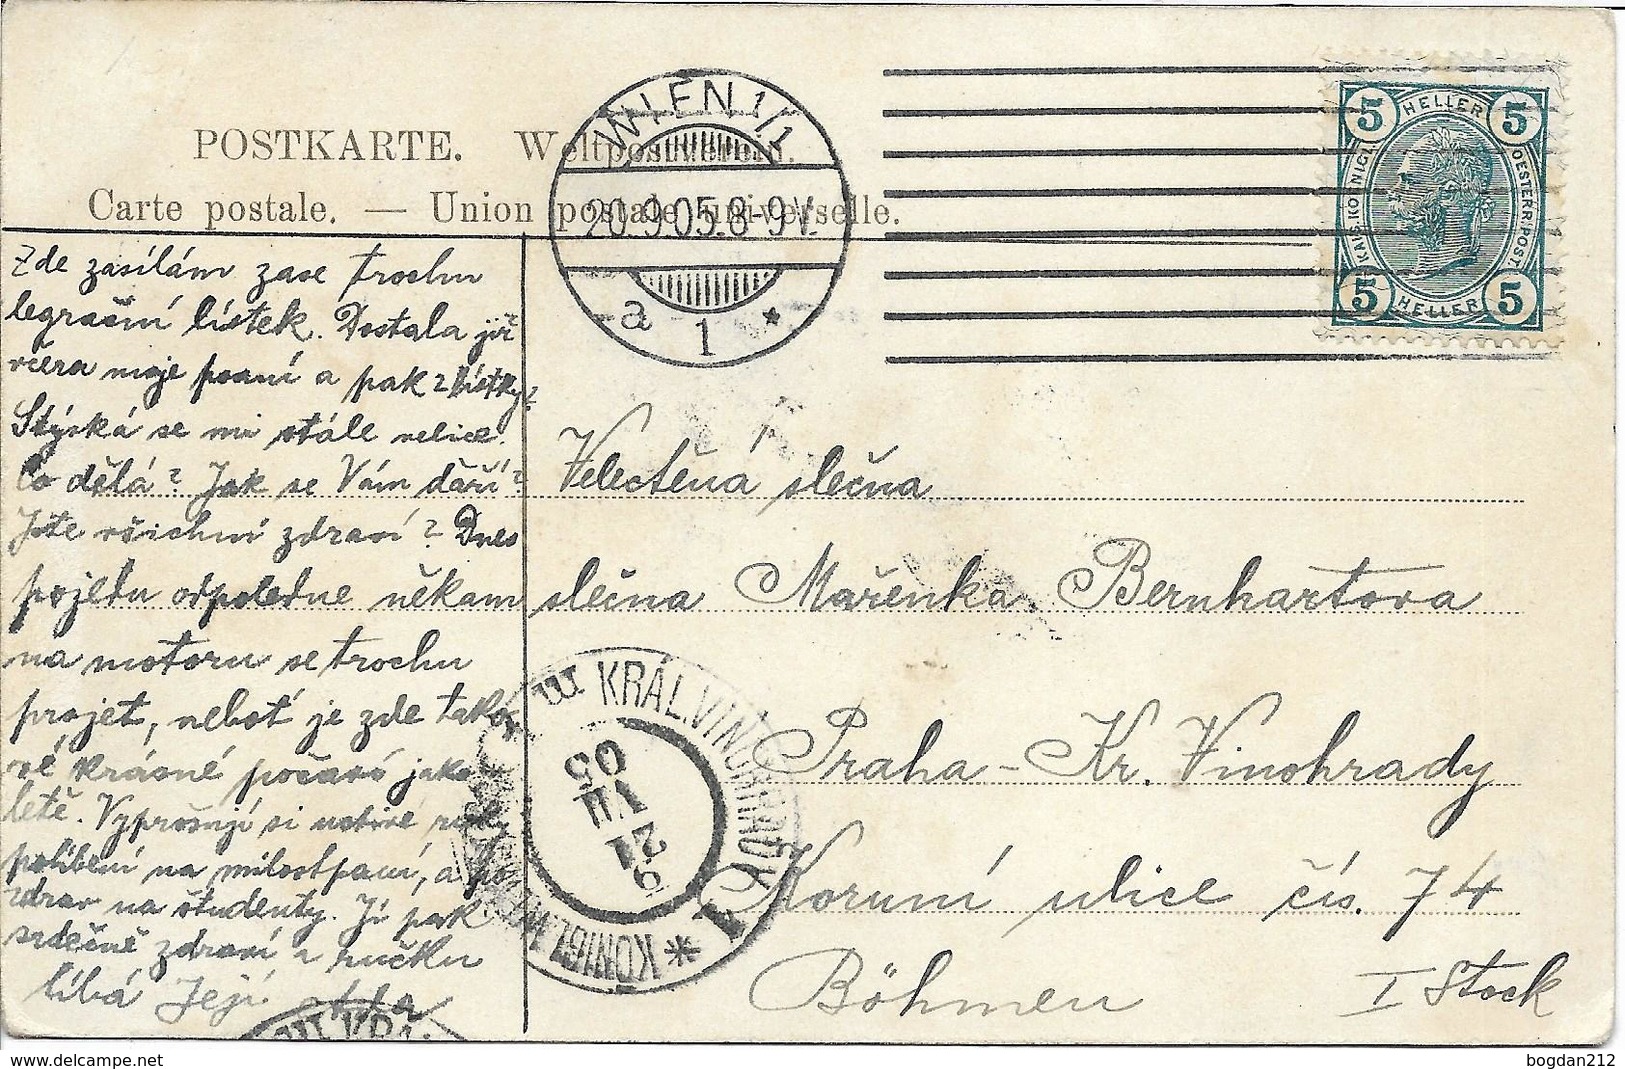 POSTKARTE. Weltpostverein.
Carte postale. — Union postale universelle.
WIEN 1/1
20.9.05.8-9V.
a 1 *
5 HELLER 5
KAIS. KÖNIGL. OESTERR. POST.
5 HELLER 5
Zde zasílám zase trochu
legrační lístek. Dostala již
včera moje psaní a pak 2 lístky?
Stýská se mi stále velice.
Co dělá? Jak se Vám daří?
Jste všichni zdraví? Dnes
pojedu odpoledne někam
na motoru se trochu
projet, neboť je zde tako-
vé krásné počasí jako v
letě. Vyprošuji si uctivé ruky
políbení na milostpaní, a po
zdrav na študenty. Ji pak
srdečně zdraví a ručku
líbá Její
Velectěná slečna
slečna Mařenka Bernhartova
Praha - Kr. Vinohrady
Korunní ulice čís. 74
Böhmen I Stock
KRÁL. VINOHRADY 1
KÖNIGL.
9
21
VII
05
KRÁL.
bogdan212
delcampe.net